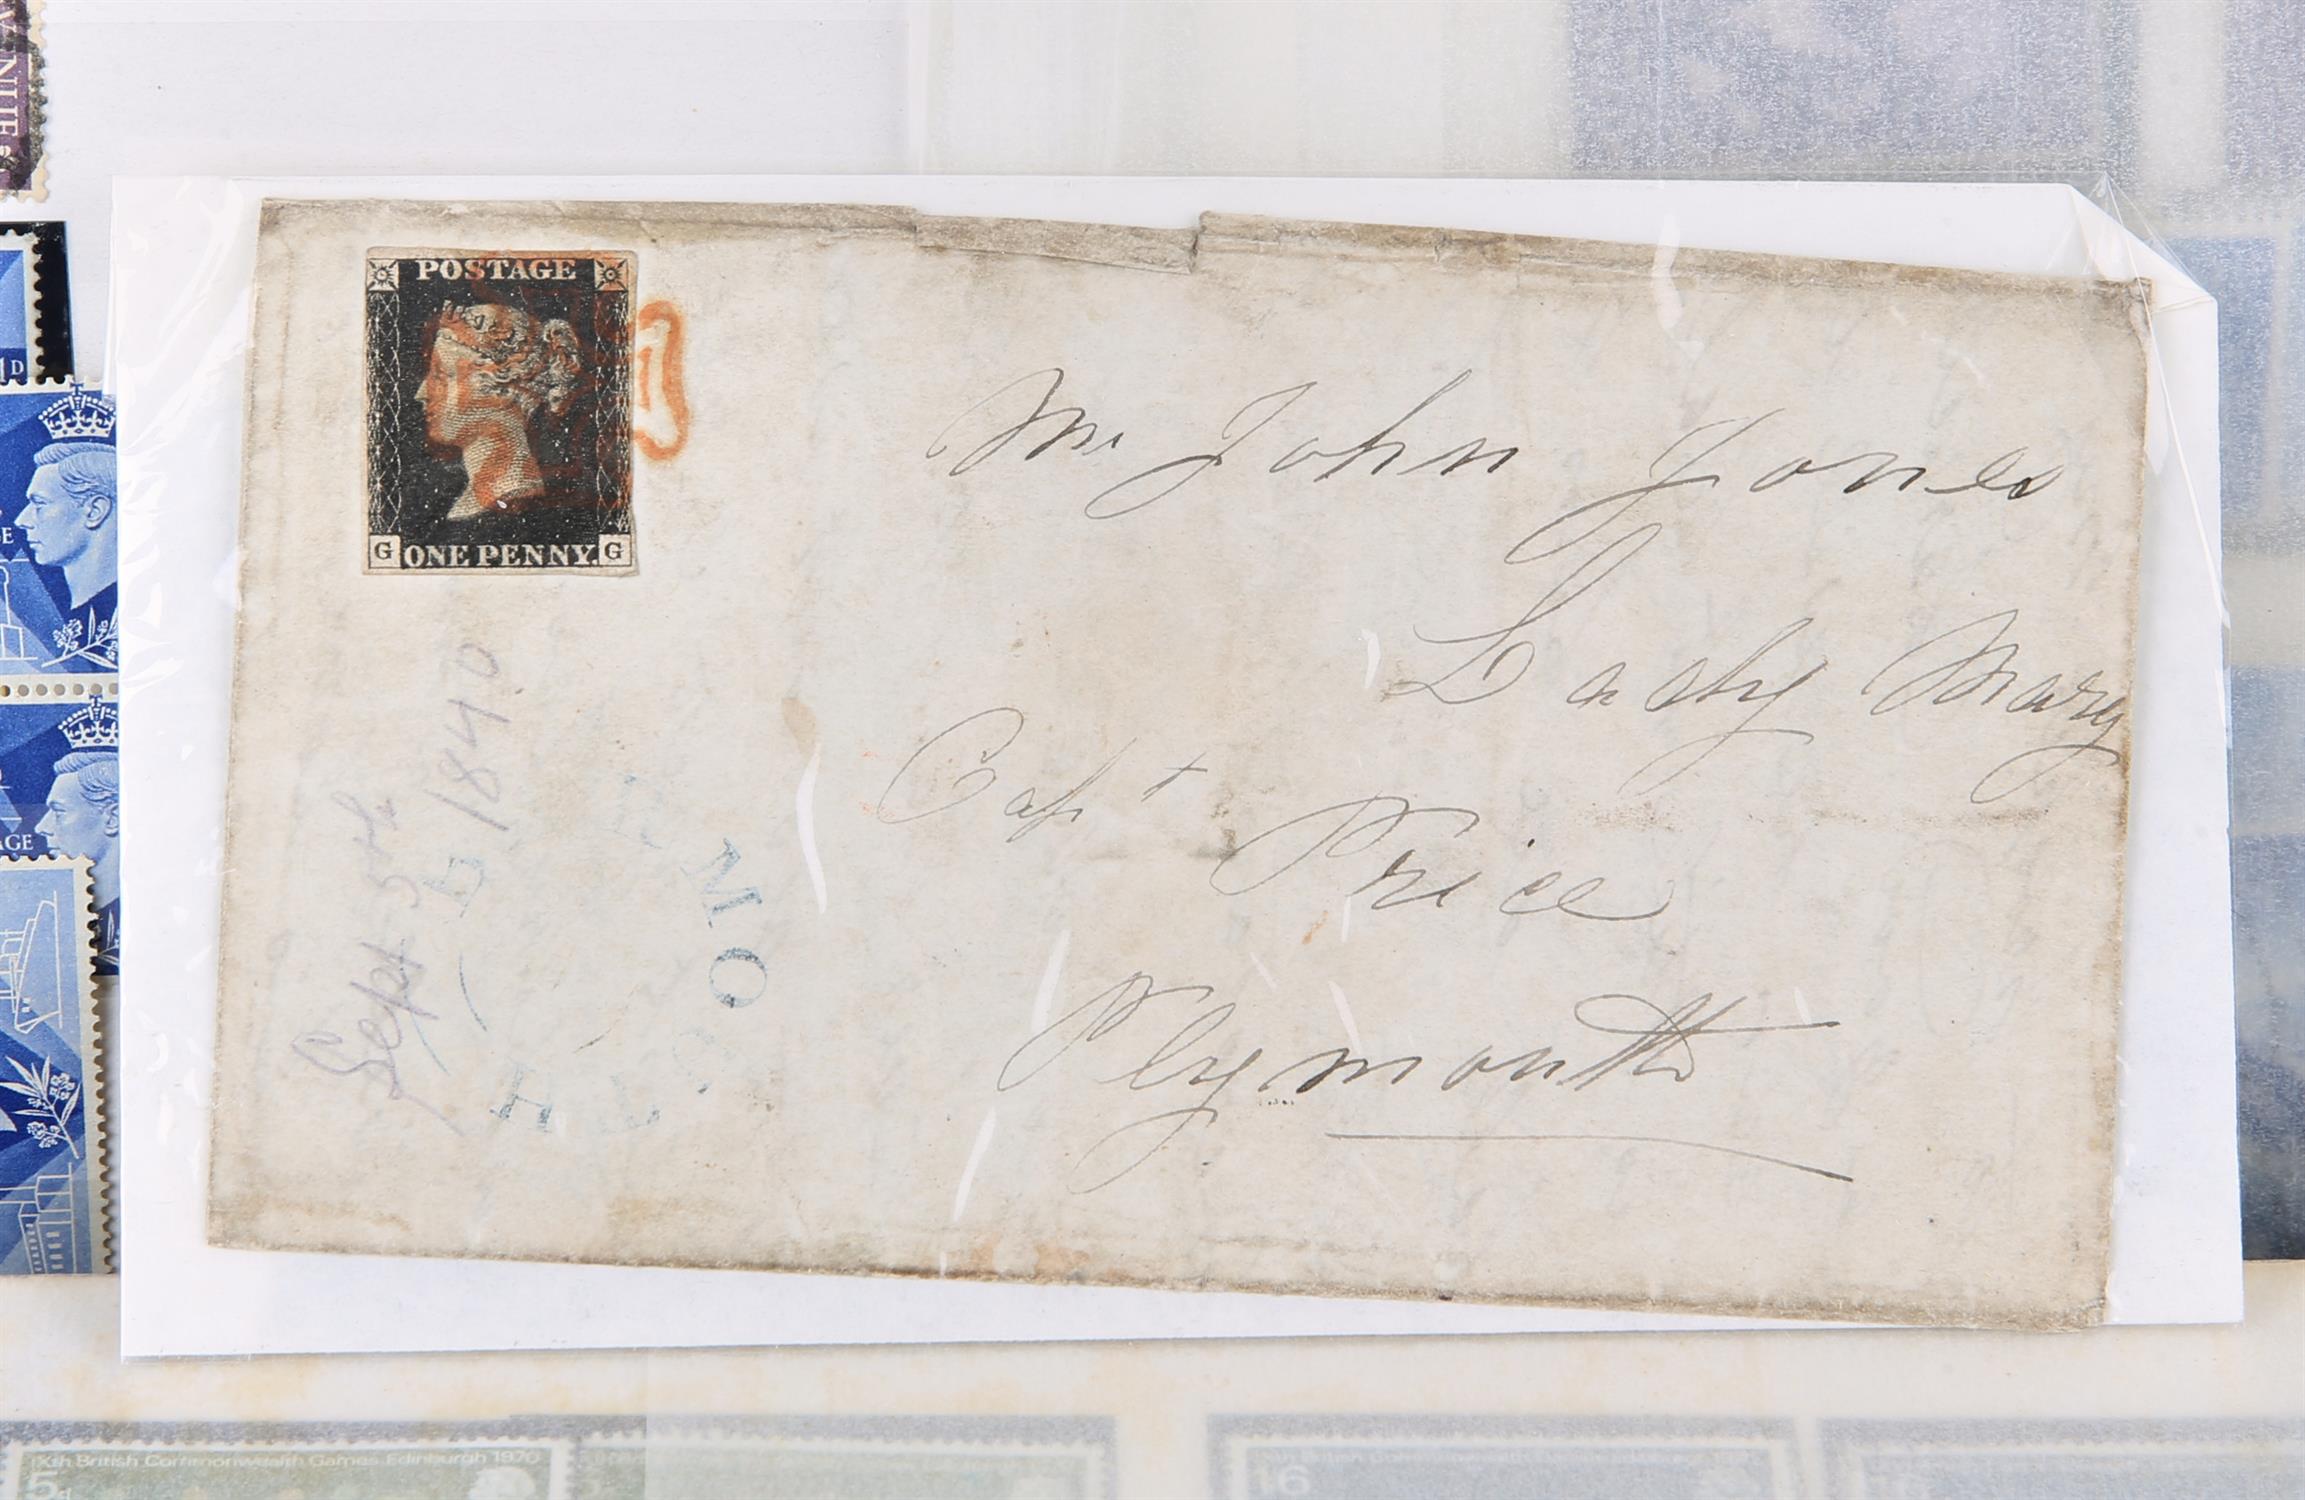 POSTAGE
G ONE PENNY. G
Mr John Jones
Lady Mary
Capt Price
Plymouth
Sept 5th
1840
1D
GE
IXth British Commonwealth Games Edinburgh 1970
5d
16